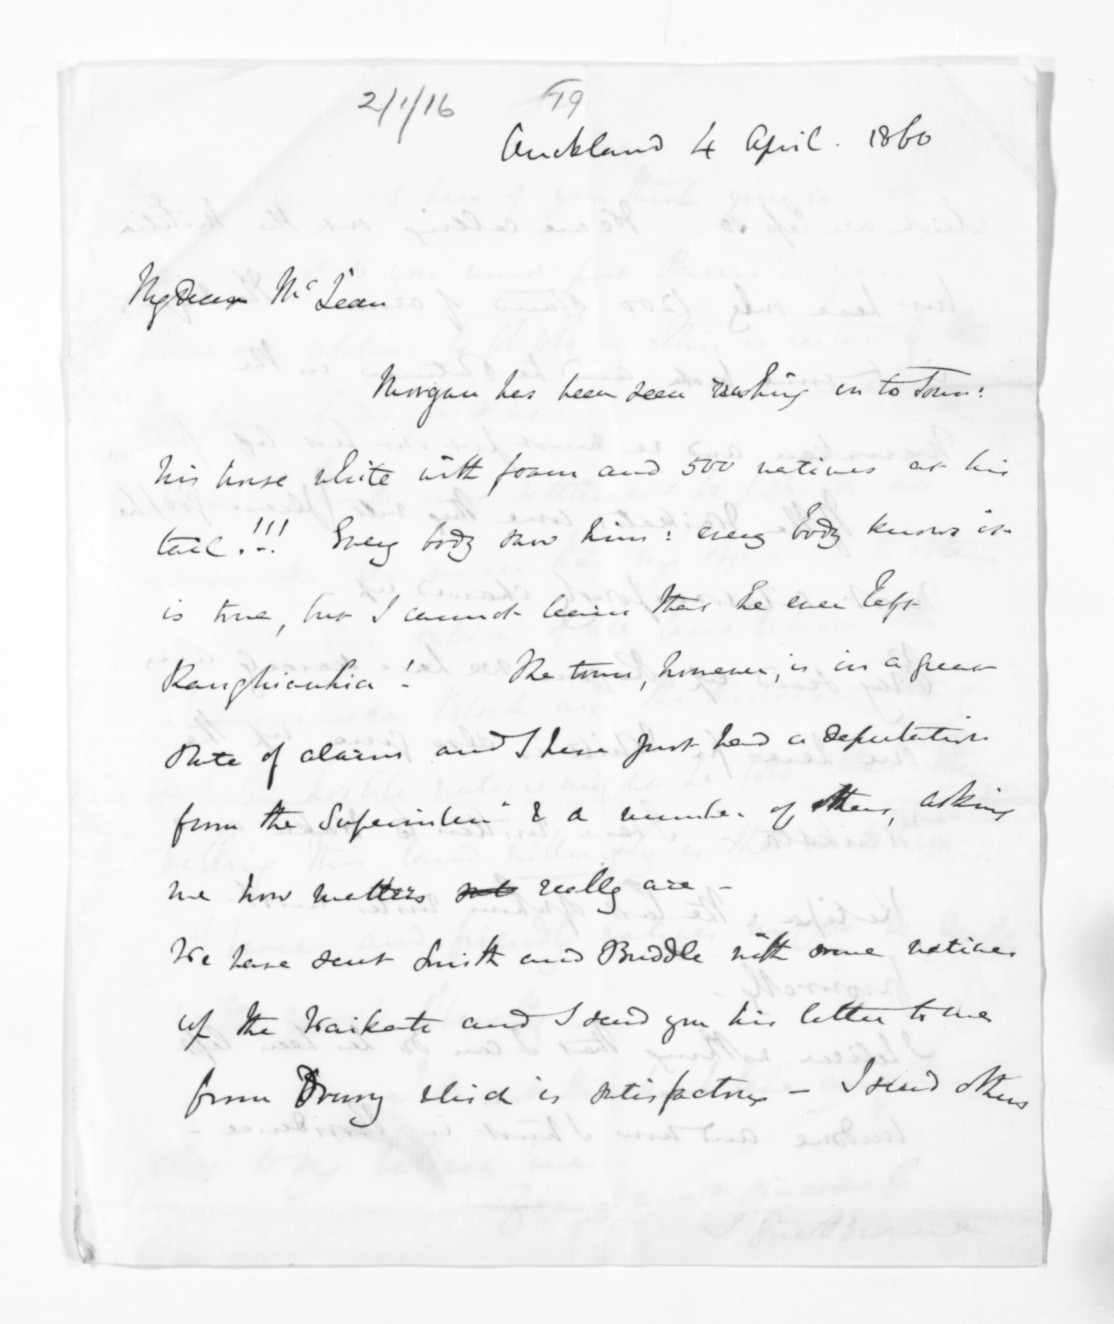 2/1/16 79
Auckland 4 April. 1860
My dear McLean
Morgan has been seen rushing in to Town:
his horse white with foam and 500 natives at his
tail.!!! Every body saw him: every body knows it
is true, but I cannot learn that he ever left
Ranghiauhia! The town, however, is in a great
State of alarm and I have just had a deputation
from the Superinten't & a number of others, asking
me how matters really are -
We have sent Smith and Buddle with some natives
up the Waikato and I send you his letter to me
from Drury which is satisfactory - I send others